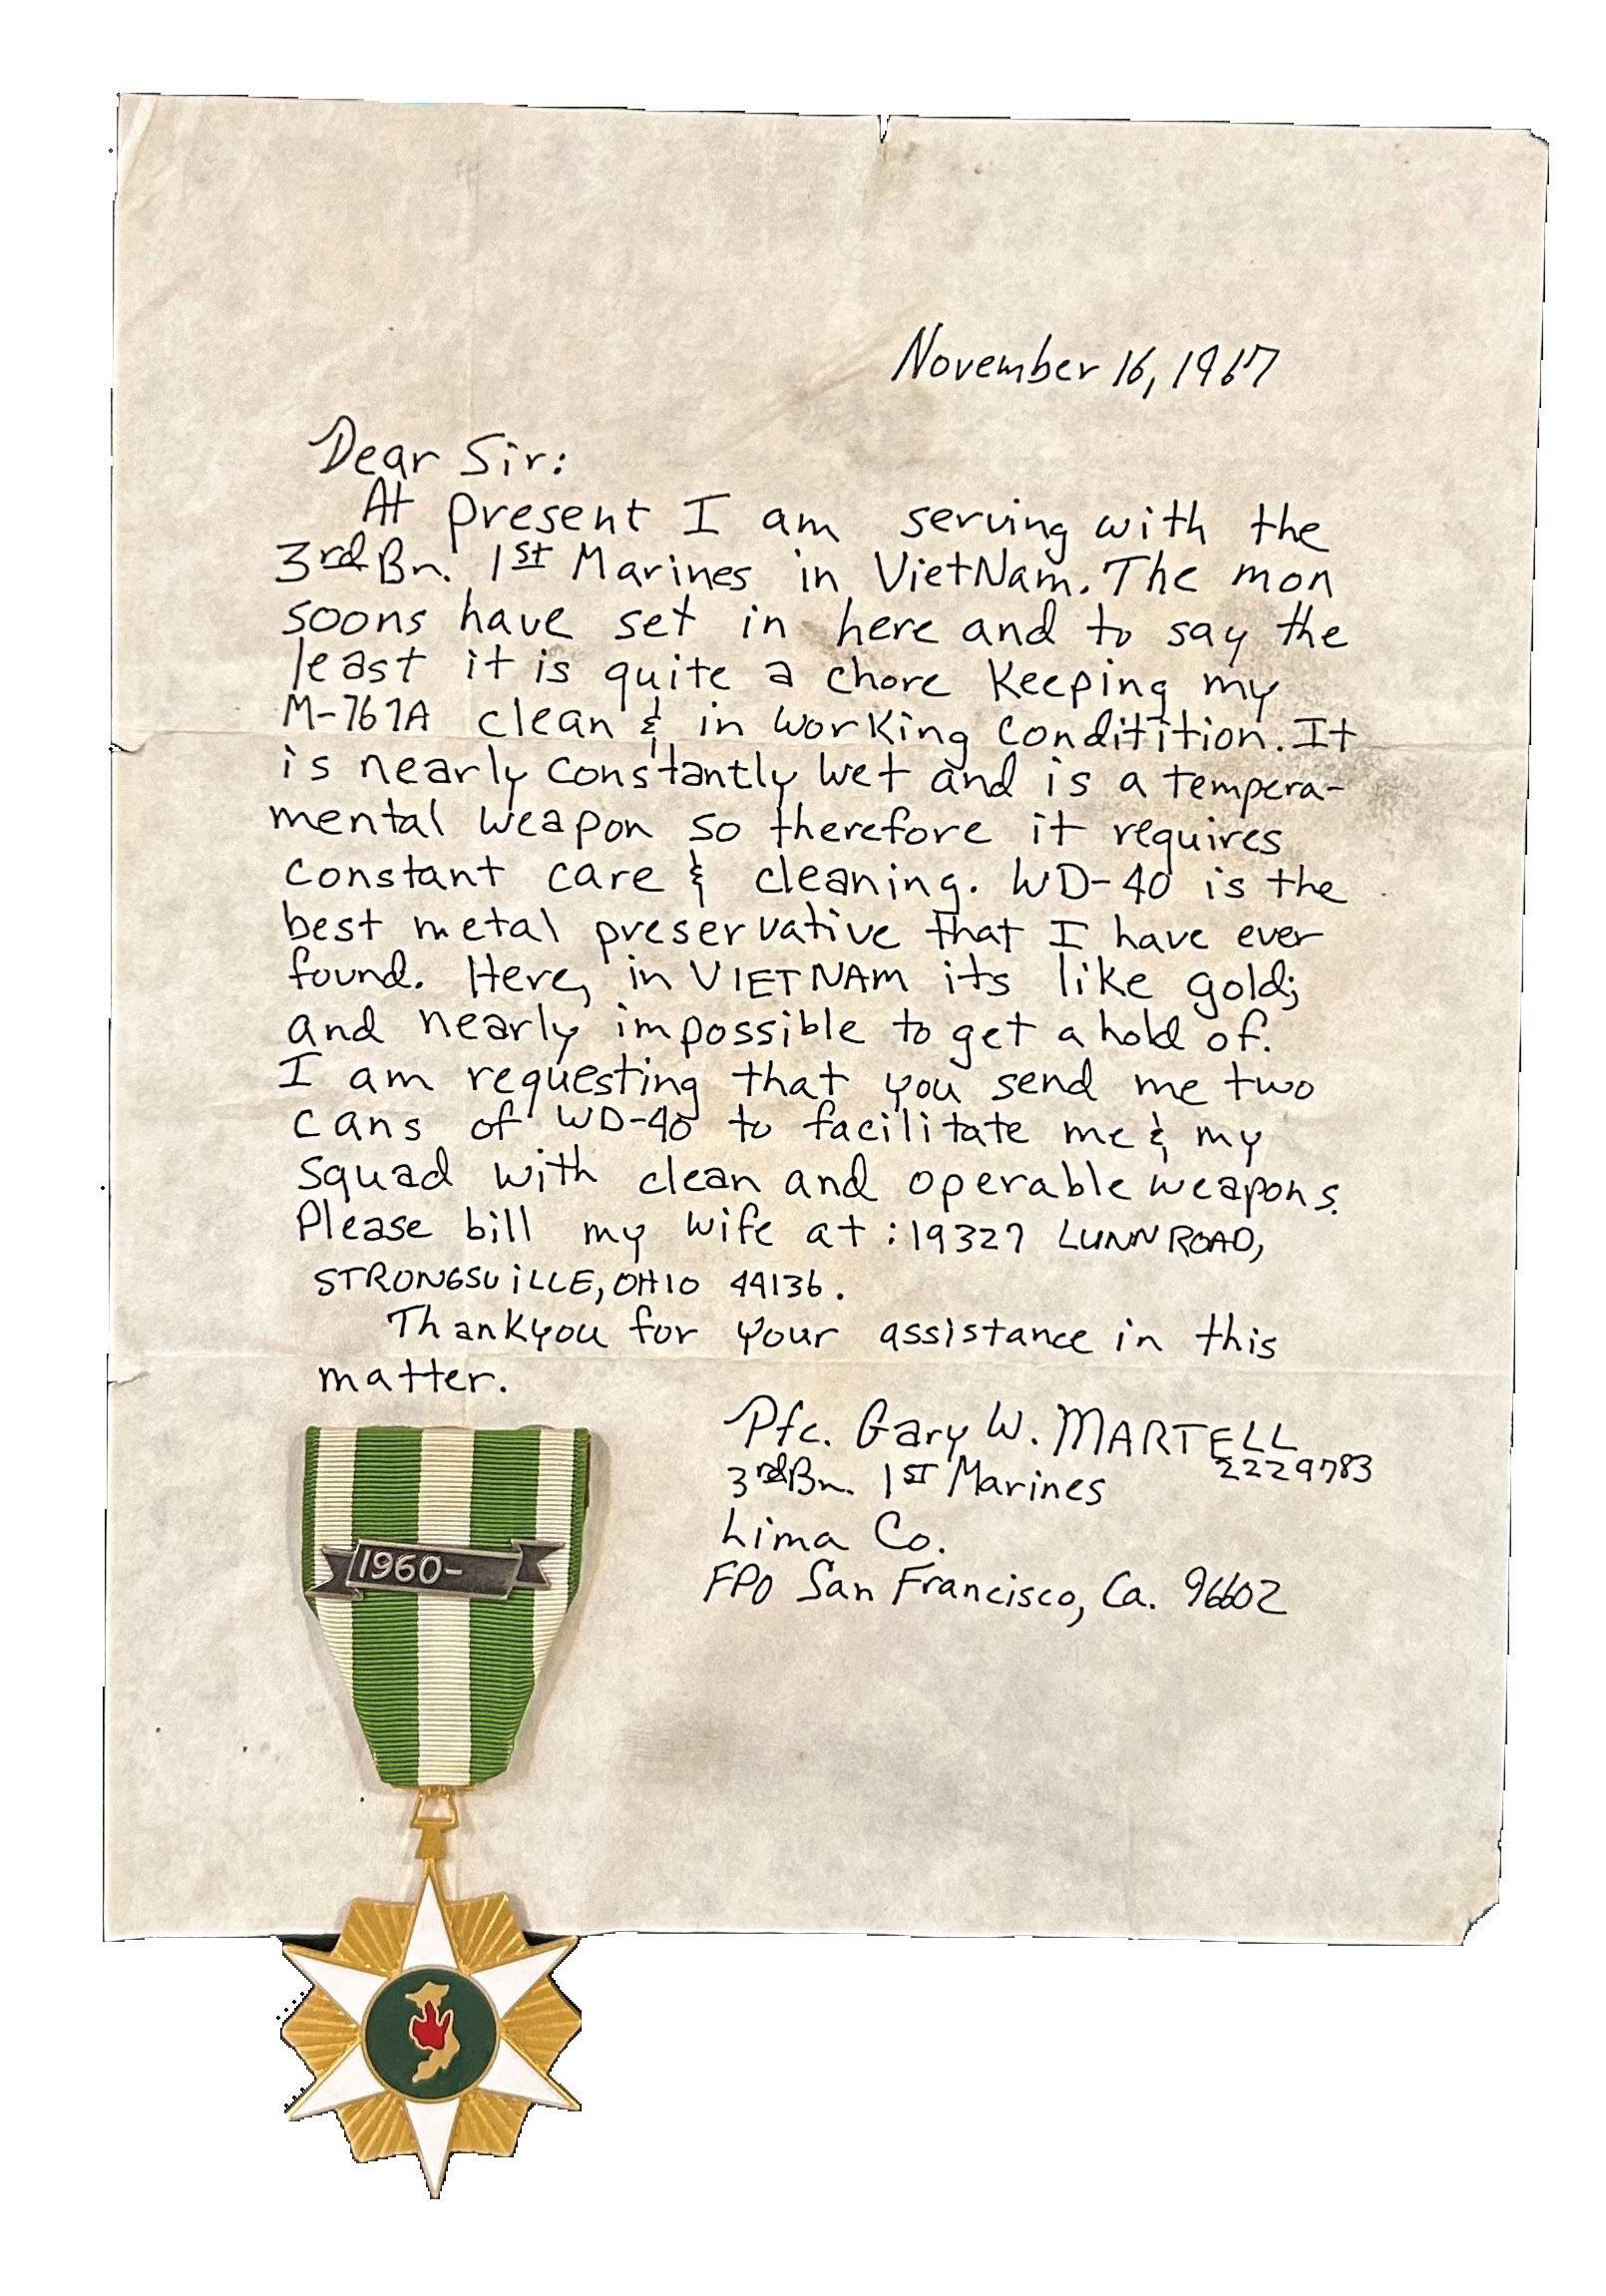 November 16, 1967
Dear Sir:
At present I am serving with the
3rd Bn. 1st Marines in VietNam. The mon
soons have set in here and to say the
least it is quite a chore keeping my
M-767A clean & in working conditition. It
is nearly constantly wet and is a tempera-
mental weapon so therefore it requires
constant care & cleaning. WD-40 is the
best metal preservative that I have ever
found. Here, in VIETNAM its like gold;
and nearly impossible to get a hold of.
I am requesting that you send me two
cans of WD-40 to facilitate me & my
squad with clean and operable weapons.
Please bill my wife at: 19327 LUNN ROAD,
STRONGSVILLE, OHIO 44136.
Thankyou for your assistance in this
matter.
Pfc. Gary W. MARTELL
2229783
3rd Bn. 1ST Marines
Lima Co.
FPO San Francisco, Ca. 96602
1960-